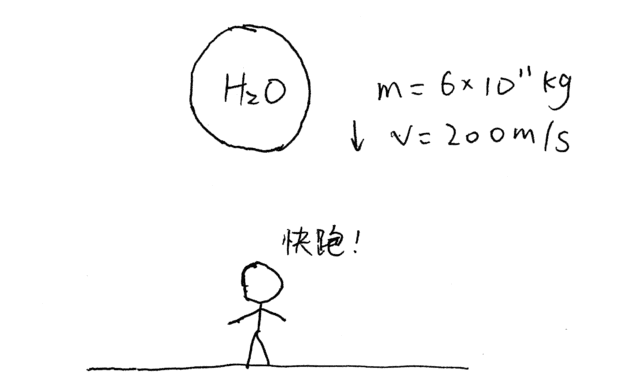 H₂O
m = 6×10¹¹ kg
↓ v = 200 m/s
快跑!